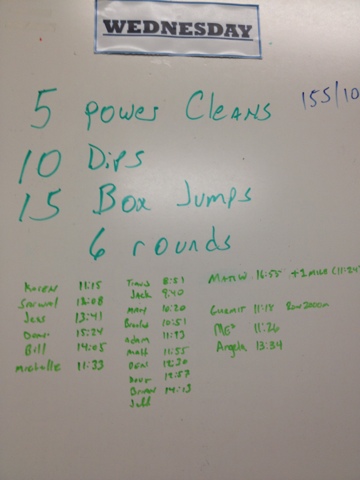 WEDNESDAY
5 Power Cleans 155/10
10 Dips
15 Box Jumps
6 rounds
Karen 11:15
13:08
Jess 13:41
15:24
Bill 14:05
Michelle 11:33
Travis 8:51
Jack 9:40
Mary 10:20
Brooke 10:51
Adam 11:43
Matt 11:55
Ben 12:30
12:57
Brian 14:13
Matw 16:55 + 2 mile (11:24)
11:18 Row 2000m
"ME" 11:26
Angela 13:34